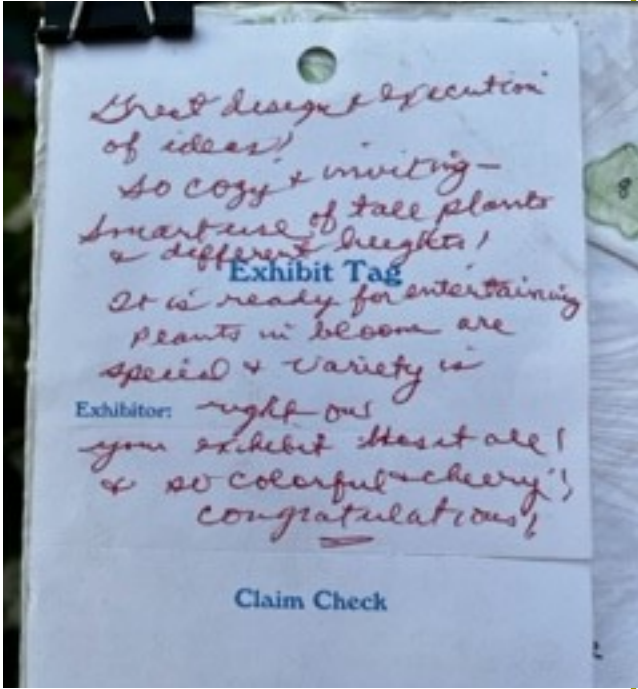 Great design & execution
of ideas!
So cozy & inviting —
Smart use of tall plants
& different heights!
Exhibit Tag
It is ready for entertaining
Plants in bloom are
special & variety is
Exhibitor: right on!
your exhibit Has it all!
& so colorful & cheery!
Congratulations!
Claim Check
8